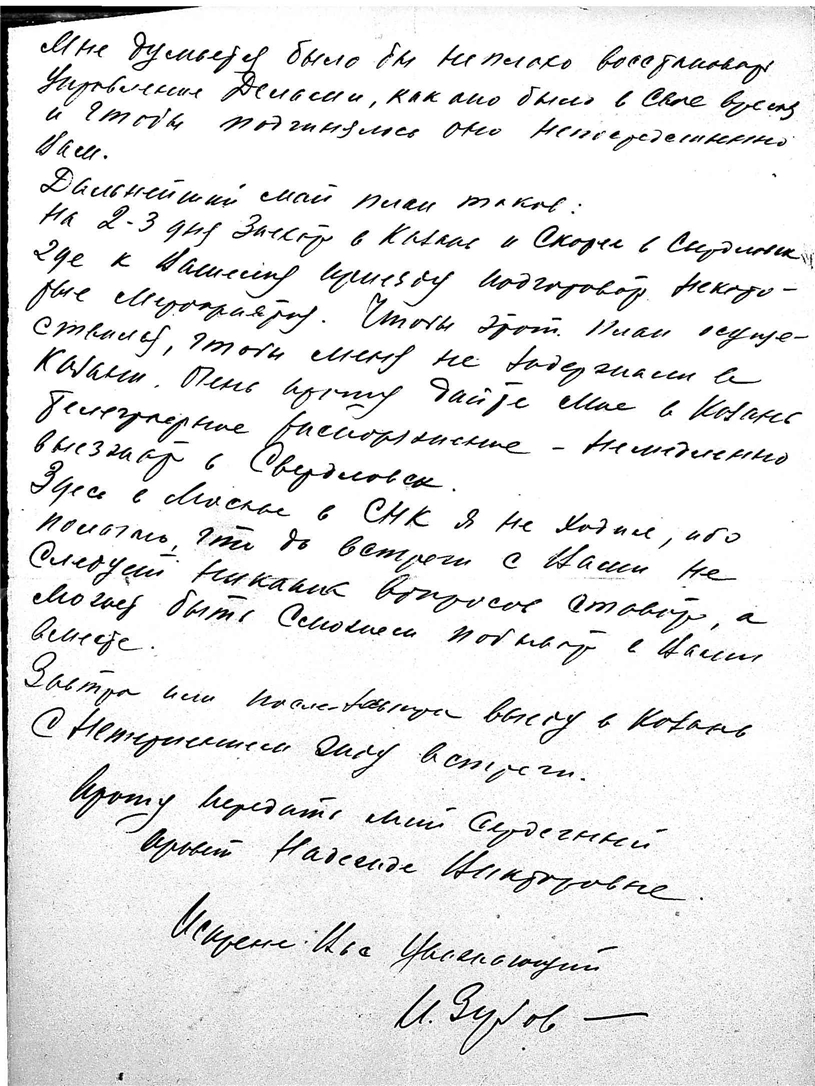 Мне думается было бы неплохо восстановить
Управление Делами, как оно было в свое время
и чтобы подчинялось оно непосредственно
Вам.
Дальнейший мой план таков:
На 2-3 дня заехать в Казань и скорее в Свердловск
где к Вашему приезду подготовить некото-
рые мероприятия. Чтобы этот план осуще-
ствился, чтобы меня не задержали в
Казани. Очень прошу дайте мне в Казань
телеграфное распоряжение – немедленно
выезжать в Свердловск.
Здесь в Москве в СНК я не ходил, ибо
полагаю, что до встречи с Вами не
следует никаких вопросов ставить, а
может быть сможем побывать с Вами
вместе.
Завтра или после-завтра выеду в Казань
С нетерпением жду встречи.
Прошу передать мой сердечный
привет Надежде Викторовне.
Искренне Вас уважающий
И. Зубов